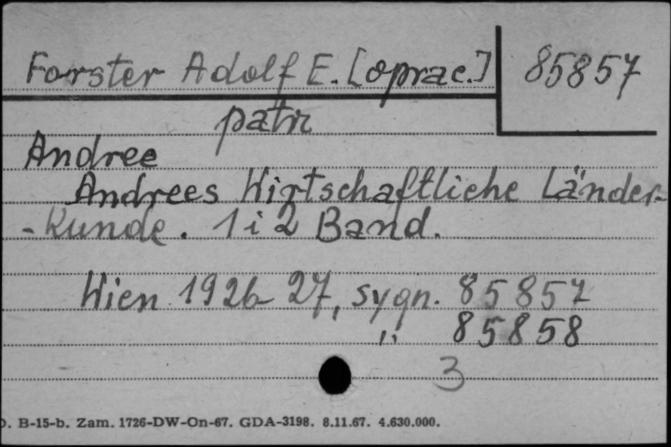 Forster Adolf E. [oprac.] 85857
patrz
Andree
Andrees Wirtschaftliche Länder-
-kunde. 1 i 2 Band.
Wien 1926-27, sygn. 85857
„ 85858
3
D. B-15-b. Zam. 1726-DW-On-67. GDA-3198. 8.11.67. 4.630.000.